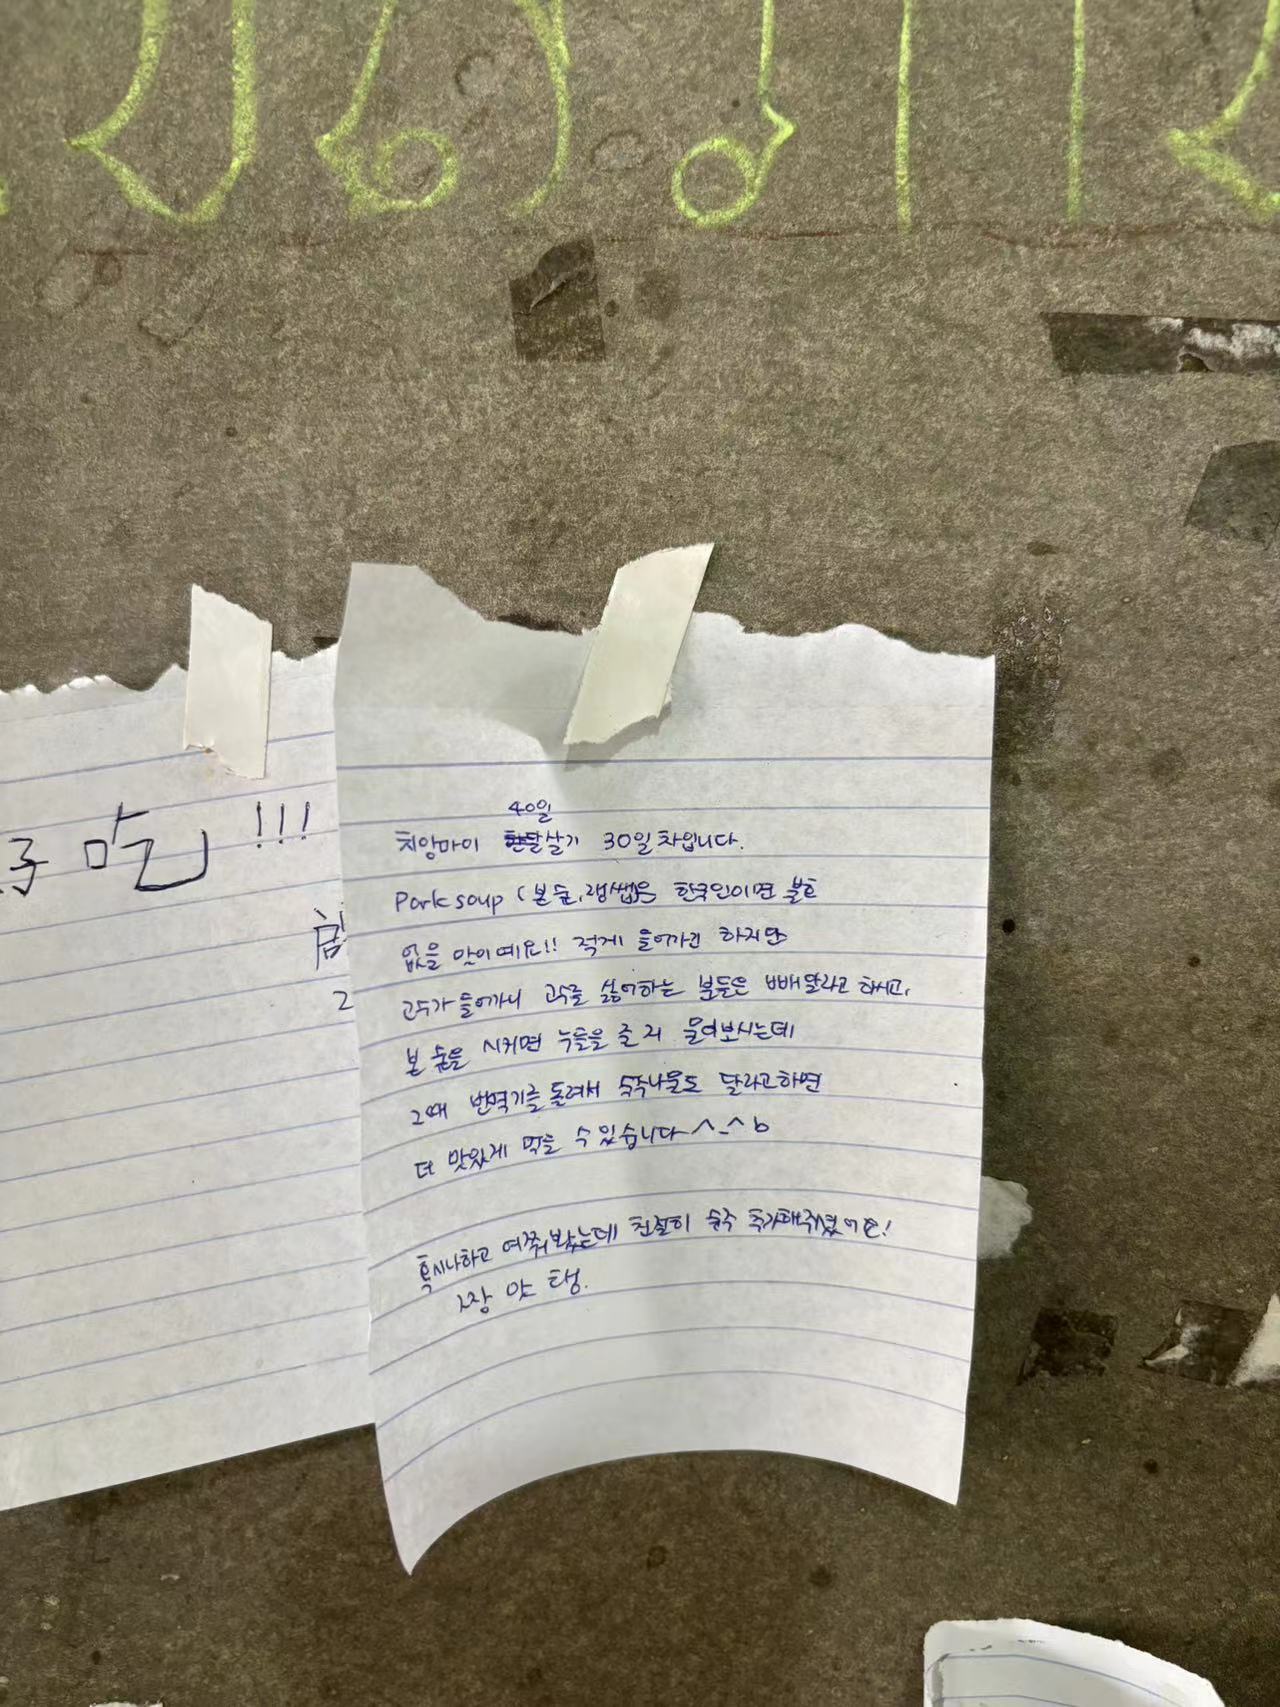 好吃!!!
2
40일
치앙마이 한달살기 30일차입니다.
Pork soup (본 숲, 랭쌥)은 한국인이면 불호
없을 맛이예요!! 적게 들어가긴 하지만
고수가 들어가니 고수를 싫어하는 분들은 빼달라고 하시고,
본 숲을 시키면 누들을 줄 지 물어보시는데
그때 번역기를 돌려서 숙주나물도 달라고하면
더 맛있게 먹을 수 있습니다^-^b
혹시나하고 여쭤봤는데 친절히 숙주 추가해주셨어요!